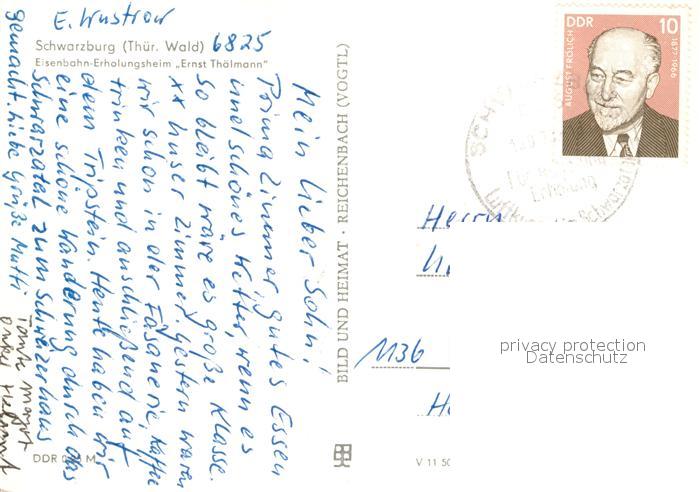 E. Wustrow
Schwarzburg (Thür. Wald) 6825
Eisenbahn-Erholungsheim „Ernst Thälmann"
Mein lieber Sohn!
Prima Zimmer, gutes Essen
und schönes Wetter, wenn es
so bleibt wäre es große Klasse.
xx unser Zimmer, gestern waren
wir schon in der Fasanerie, Kaffee
trinken und anschließend auf
dem Trippstein. Heute haben wir
eine schöne Wanderung durch das
Schwarzatal zum Schweizerhaus
gemacht. Liebe Grüße Mutti
Tante Margot
Onkel Helmut
DDR M
BILD UND HEIMAT · REICHENBACH (VOGTL)
V 11 50
DDR 10
AUGUST FRÖLICH
1877-1966
Erholung
Herrn
1136
privacy protection
Datenschutz